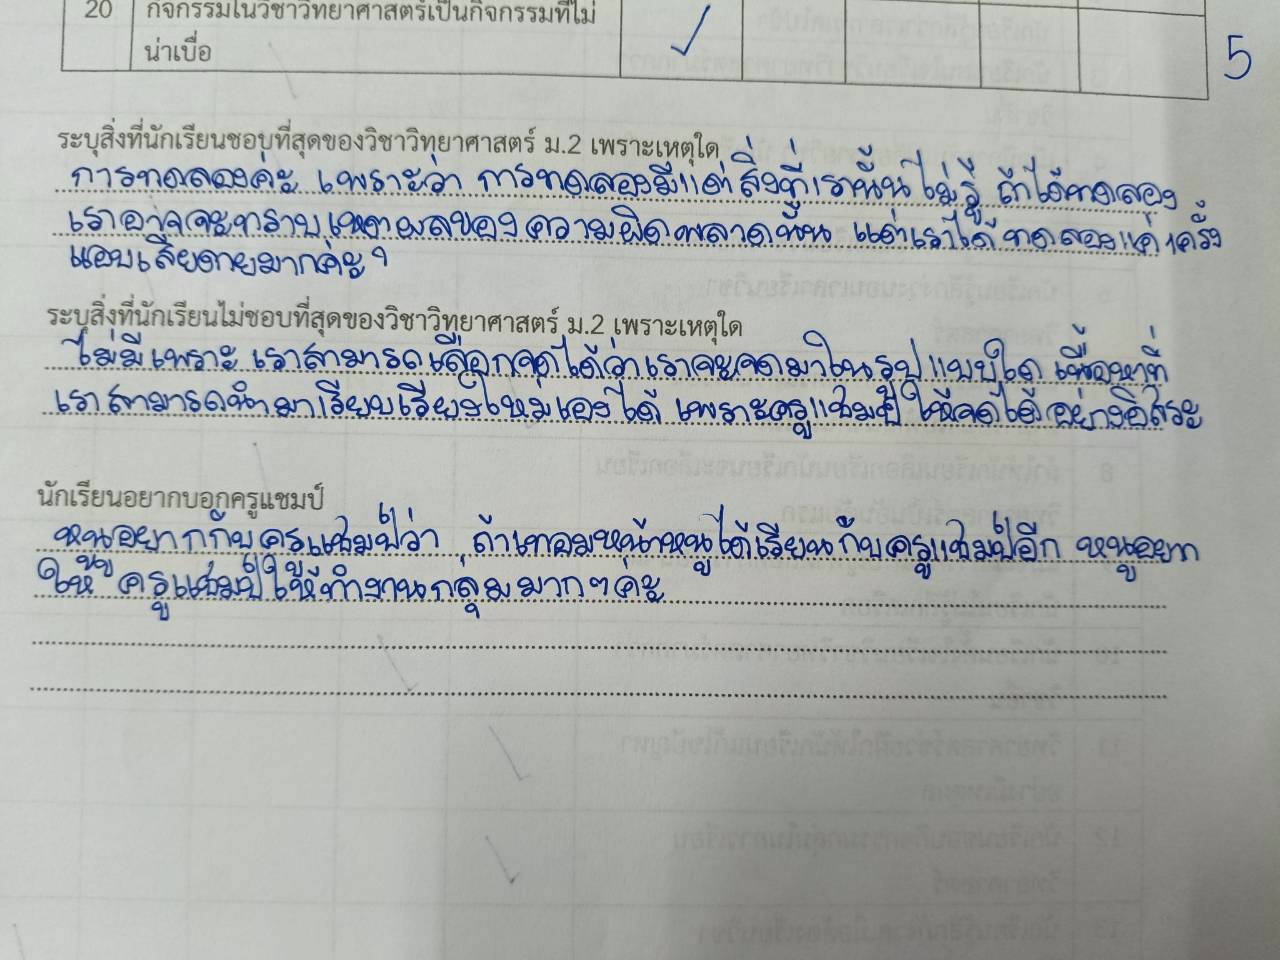 20 กิจกรรมในวิชาวิทยาศาสตร์เป็นกิจกรรมที่ไม่
น่าเบื่อ
5
ระบุสิ่งที่นักเรียนชอบที่สุดของวิชาวิทยาศาสตร์ ม.2 เพราะเหตุใด
การทดลองค่ะ เพราะว่า การทดลองมีแต่สิ่งที่เรานั้นไม่รู้ ถ้าได้ทดลอง
เราอาจจะทราบเหตุผลของความผิดพลาดนั้น แต่เราได้ทดลองแค่ 1 ครั้ง
แอบเสียดายมากค่ะ
ระบุสิ่งที่นักเรียนไม่ชอบที่สุดของวิชาวิทยาศาสตร์ ม.2 เพราะเหตุใด
ไม่มี เพราะ เราสามารถเลือกจดได้ว่าเราจะจดมาในรูปแบบใด เนื้อหาที่
เราสามารถนำมาเรียบเรียงใหม่เองได้ เพราะครูแชมป์ ให้จดได้อย่างอิสระ
นักเรียนอยากบอกครูแชมป์
หนูอยากกับครูแชมป์ว่า ถ้าเทอมหน้าหนูได้เรียนกับครูแชมป์อีก หนูอยาก
ให้ ครูแชมป์ให้ทำงานกลุ่มมากๆค่ะ